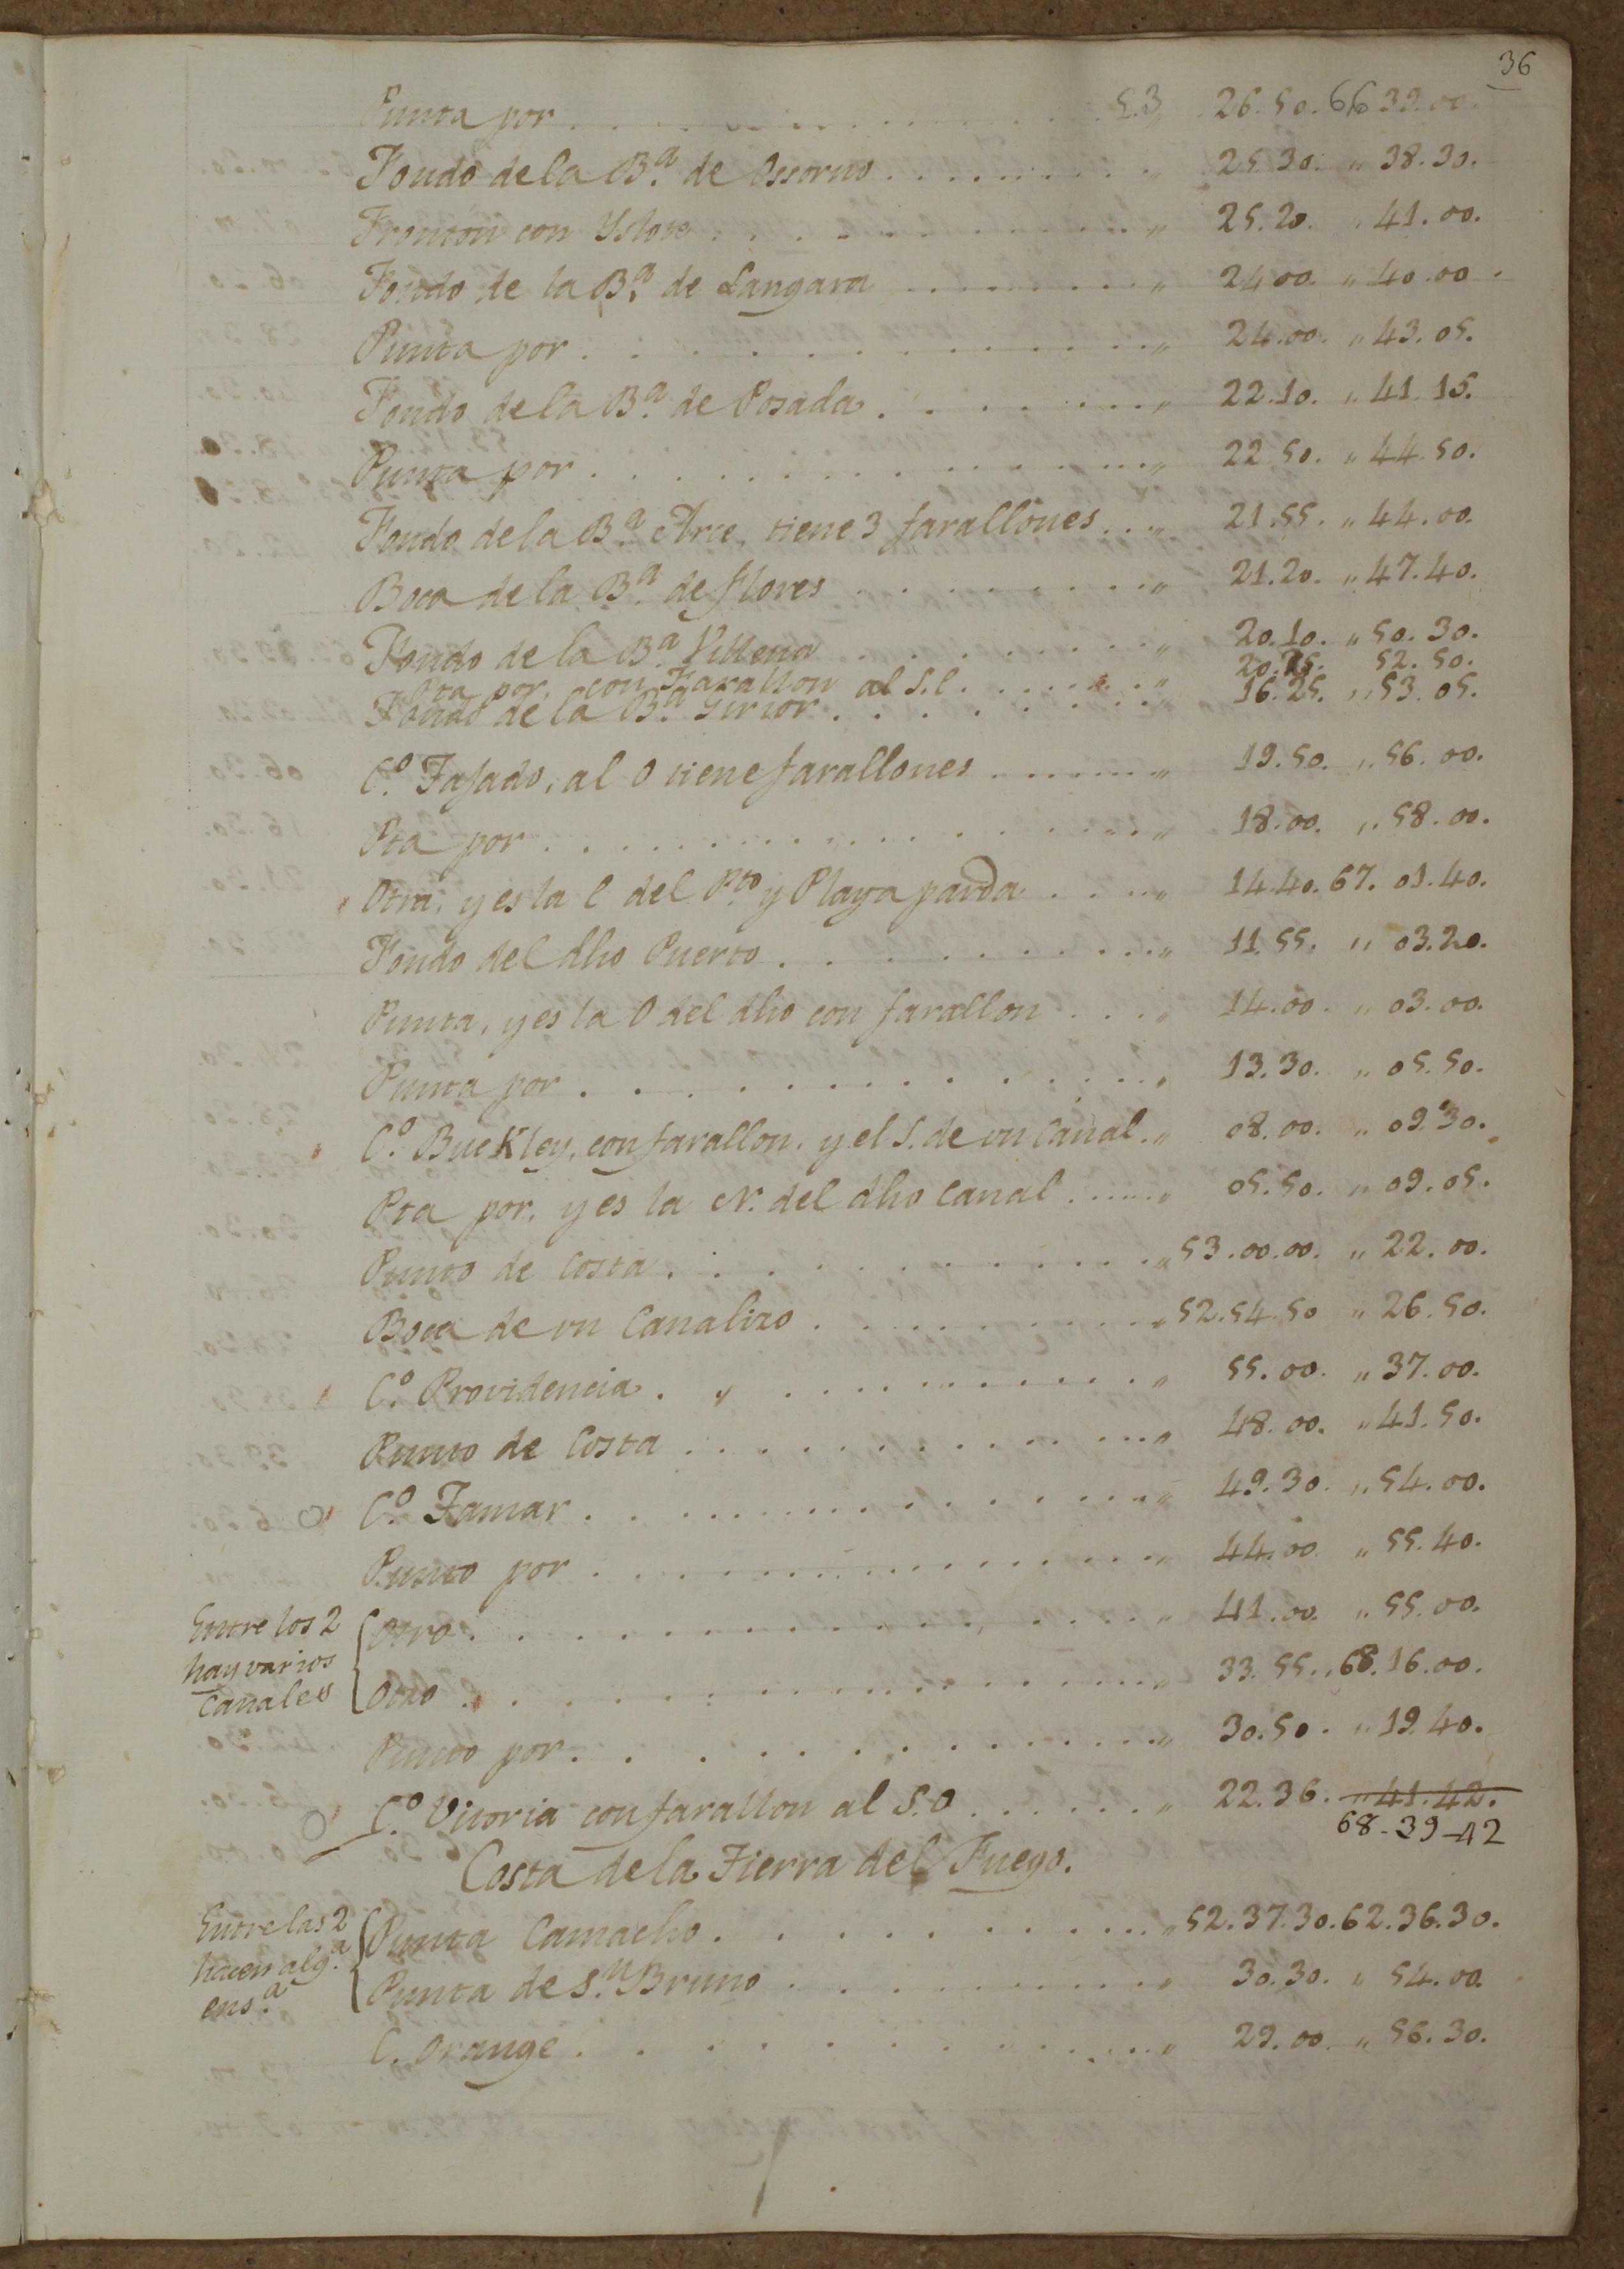 36
Punta por . . . . . 53 26.50. 66 39.00.
Fondo de la B.ª de Ossorno . . . . . " 25.30. " 38.30.
Fronton con Yslote . . . . . " 25.20. " 41.00.
Fondo de la B.ª de Langara . . . . . " 24.00. " 40.00.
Punta por . . . . . " 24.00. " 43.05.
Fondo de la B.ª de Posada . . . . . " 22.10. " 41.15.
Punta por . . . . . " 22.50. " 44.50.
Fondo de la B.ª Arce, tiene 3 farallones . . . " 21.55. " 44.00.
Boca de la B.ª de flores . . . . . " 21.20. " 47.40.
Fondo de la B.ª Villena . . . . . " 20.10. " 50.30.
Pta por, con Farallon al S.E. . . . . . " 20.25. 52.50.
Fondo de la B.ª Guirior . . . . . " 16.25. " 53.05.
C.º Tajado, al O tiene farallones . . . . . " 19.50. " 56.00.
Pta por . . . . . " 18.00. " 58.00.
Otra, y es la E del P.to y Playa parda . . . . " 14.40. 67. 01.40.
Fondo del dho Puerto . . . . . " 11.55. " 03.20.
Punta, y es la O del dho con farallon . . . " 14.00. " 03.00.
Punta por . . . . . " 13.30. " 05.50.
C.º Buckley, con farallon, y el S. de un Canal. " 08.00. " 09.30.
Pta por, y es la N. del dho Canal . . . . . " 05.50. " 09.05.
Punto de Costa . . . . . " 53.00.00. " 22.00.
Boca de un Canalizo . . . . . " 52.54.50 " 26.50.
C.º Providencia . . . . . " 55.00. " 37.00.
Punto de Costa . . . . . " 48.00. " 41.50.
C.º Tamar . . . . . " 49.30. " 54.00.
Punto por . . . . . " 44.00. " 55.40.
Entre los 2
hay varios
Canales
Otro . . . . . " 41.00. " 55.00.
Otro . . . . . " 33.55. " 68.16.00.
Punto por . . . . . " 30.50. " 19.40.
C.º Vitoria con farallon al S.O . . . . . " 22.36. " 41.42.
68-39-42
Costa de la Tierra del Fuego.
Entre las 2
hacen alg.ª
ens.ª
Punta Camacho . . . . . " 52.37.30. 62.36.30.
Punta de S.n Bruno . . . . . " 30.30. " 54.00.
C. Orange . . . . . " 29.00. " 56.30.